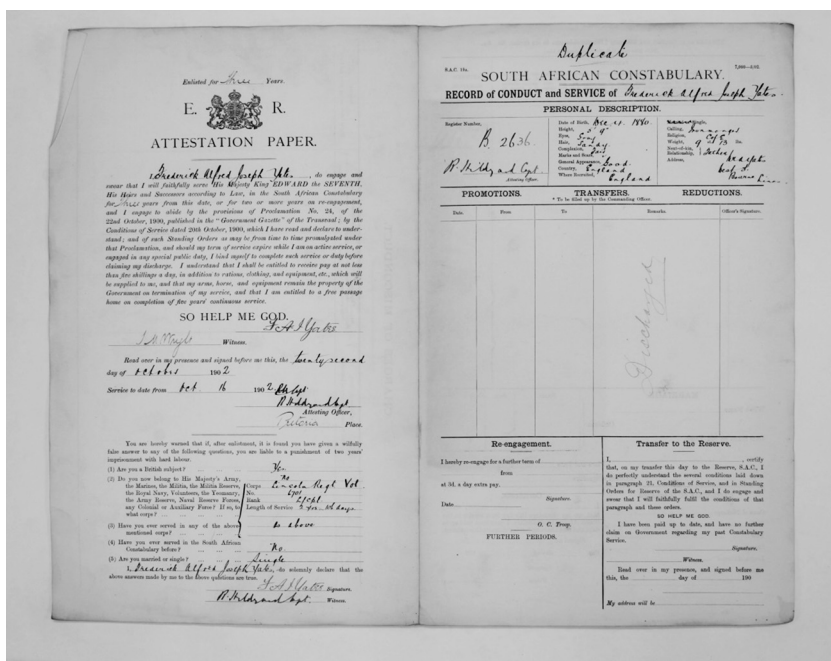 Enlisted for Three Years.
E. R.
ATTESTATION PAPER.
I, Frederick Alfred Joseph Yates, do engage and
swear that I will faithfully serve His Majesty King EDWARD the SEVENTH,
His Heirs and Successors according to Law, in the South African Constabulary
for three years from this date, or for two or more years on re-engagement,
and I engage to abide by the provisions of Proclamation No. 24, of the
22nd October, 1900, published in the "Government Gazette" of the Transvaal; by the
Conditions of Service dated 20th October, 1900, which I have read and declare to under-
stand; and of such Standing Orders as may be from time to time promulgated under
that Proclamation, and should my term of service expire while I am on active service, or
engaged in any special public duty, I bind myself to complete such service or duty before
claiming my discharge. I understand that I shall be entitled to receive pay at not less
than five shillings a day, in addition to rations, clothing, and equipment, etc., which will
be supplied to me, and that my arms, horse, and equipment remain the property of the
Government on termination of my service, and that I am entitled to a free passage
home on completion of five years' continuous service.
SO HELP ME GOD.
F A J Yates
Witness.
Read over in my presence and signed before me this, the twenty second
day of October 1902
Service to date from Oct 16 1902
Attesting Officer,
Pretoria Place.
You are hereby warned that if, after enlistment, it is found you have given a wilfully
false answer to any of the following questions, you are liable to a punishment of two years'
imprisonment with hard labour.
(1) Are you a British subject? Yes
(2) Do you now belong to His Majesty's Army, no
the Marines, the Militia, the Militia Reserve, Corps Lincoln Regt Vol
the Royal Navy, Volunteers, the Yeomanry, No.
the Army Reserve, Naval Reserve Forces, Rank
any Colonial or Auxiliary Force? If so, to Length of Service
what corps?
(3) Have you ever served in any of the above as above
mentioned corps?
(4) Have you ever served in the South African
Constabulary before? No.
(5) Are you married or single? Single
I, Frederick Alfred Joseph Yates, do solemnly declare that the
above answers made by me to the above questions are true.
F A J Yates Signature.
Witness.
Duplicate
S.A.C. 18a.
SOUTH AFRICAN CONSTABULARY.
RECORD of CONDUCT and SERVICE of Frederick Alfred Joseph Yates.
PERSONAL DESCRIPTION.
Register Number,
B. 2636
Attesting Officer.
Date of Birth, Dec 21. 1880
Height, 5' 9"
Eyes, Grey
Hair, Sandy
Complexion, Fair
Marks and Scars,
General Appearance, Good
Country, England
Where Recruited, England
Single,
Calling, Ironmonger
Religion, C of E
Weight,
Next-of-kin,
Relationship, Father
Address,
PROMOTIONS. TRANSFERS. REDUCTIONS.
* To be filled up by the Commanding Officer.
Date. From. To Remarks. Officer's Signature.
Discharged
Re-engagement.
I hereby re-engage for a further term of
at 3d. a day extra pay.
Signature.
Date
O. C. Troop.
FURTHER PERIODS.
Transfer to the Reserve.
I, certify
that, on my transfer this day to the Reserve, S.A.C., I
do perfectly understand the several conditions laid down
in paragraph 21, Conditions of Service, and in Standing
Orders for Reserve of the S.A.C., and I do engage and
swear that I will faithfully fulfil the conditions of that
paragraph and these orders.
SO HELP ME GOD.
I have been paid up to date, and have no further
claim on Government regarding my past Constabulary
Service.
Signature.
Witness.
Read over in my presence, and signed before me
this, the day of 190
My address will be